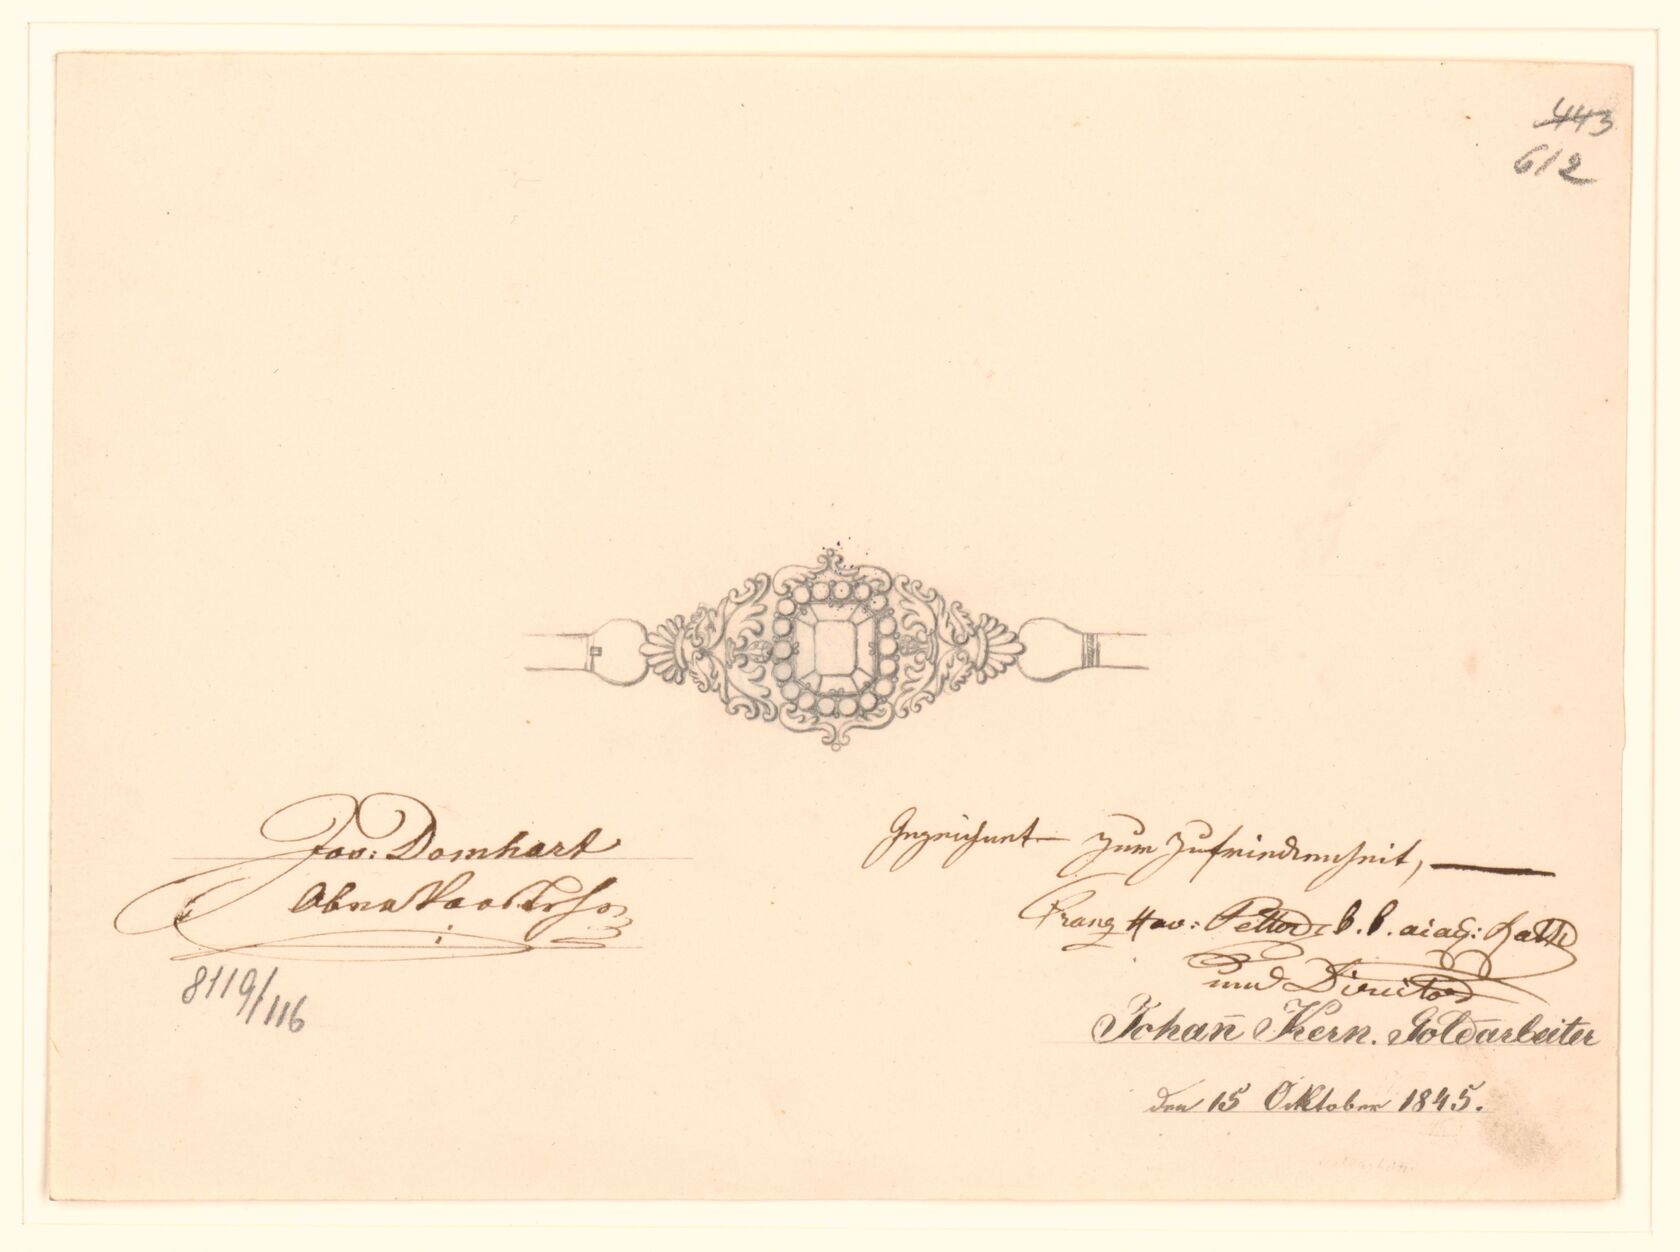 443
612
Jos: Domhart
8119/116
Gezeichnet zum Zufriedenheit,
Franz Xav: k. k. Rath
und Director
Johan̄ Kern. Goldarbeiter
den 15 Oktober 1845.